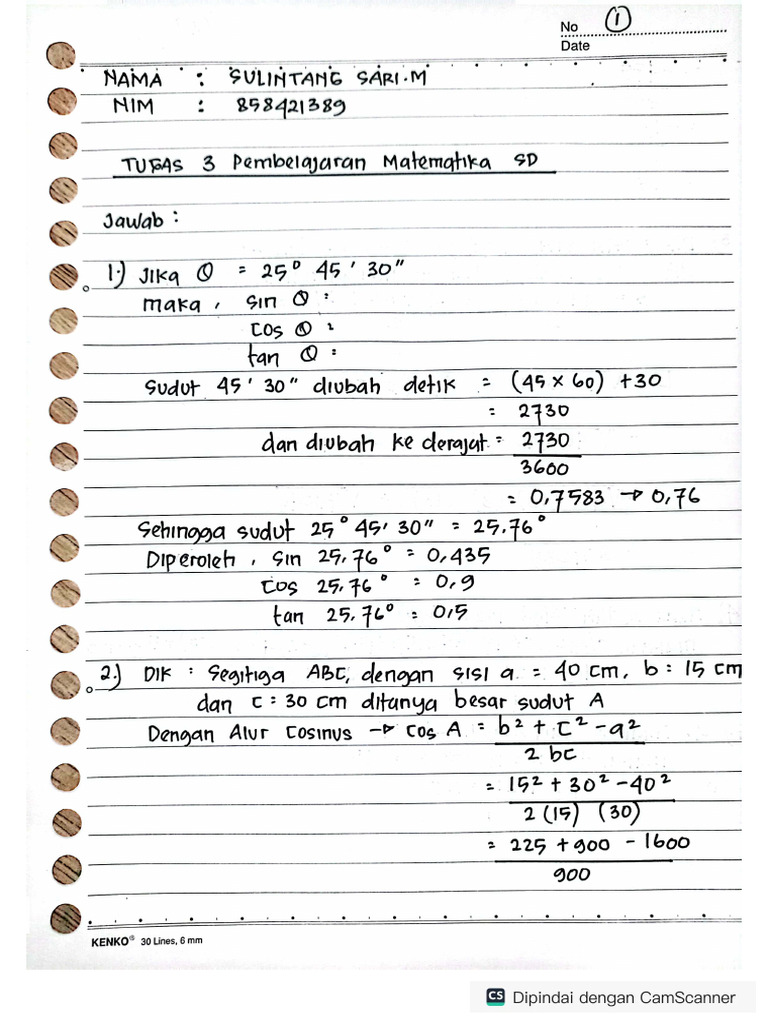 No ①
Date
NAMA : SULINTANG SARI.M
NIM : 858421389
TUGAS 3 Pembelajaran Matematika SD
Jawab :
1.) Jika θ = 25° 45' 30"
maka, sin θ =
cos θ =
tan θ =
Sudut 45' 30" diubah detik = (45 × 60) + 30
= 2730
dan diubah ke derajat = 2730
3600
= 0,7583 → 0,76
Sehingga sudut 25° 45' 30" = 25.76°
Diperoleh, sin 25,76° = 0,435
cos 25,76° = 0,9
tan 25,76° = 0,5
2.) DIK : Segitiga ABC, dengan sisi a = 40 cm, b = 15 cm
dan c = 30 cm ditanya besar sudut A
Dengan Alur Cosinus → cos A = b² + c² - a²
2 bc
= 15² + 30² - 40²
2 (15) (30)
= 225 + 900 - 1600
900
KENKO® 30 Lines, 6 mm
CS Dipindai dengan CamScanner